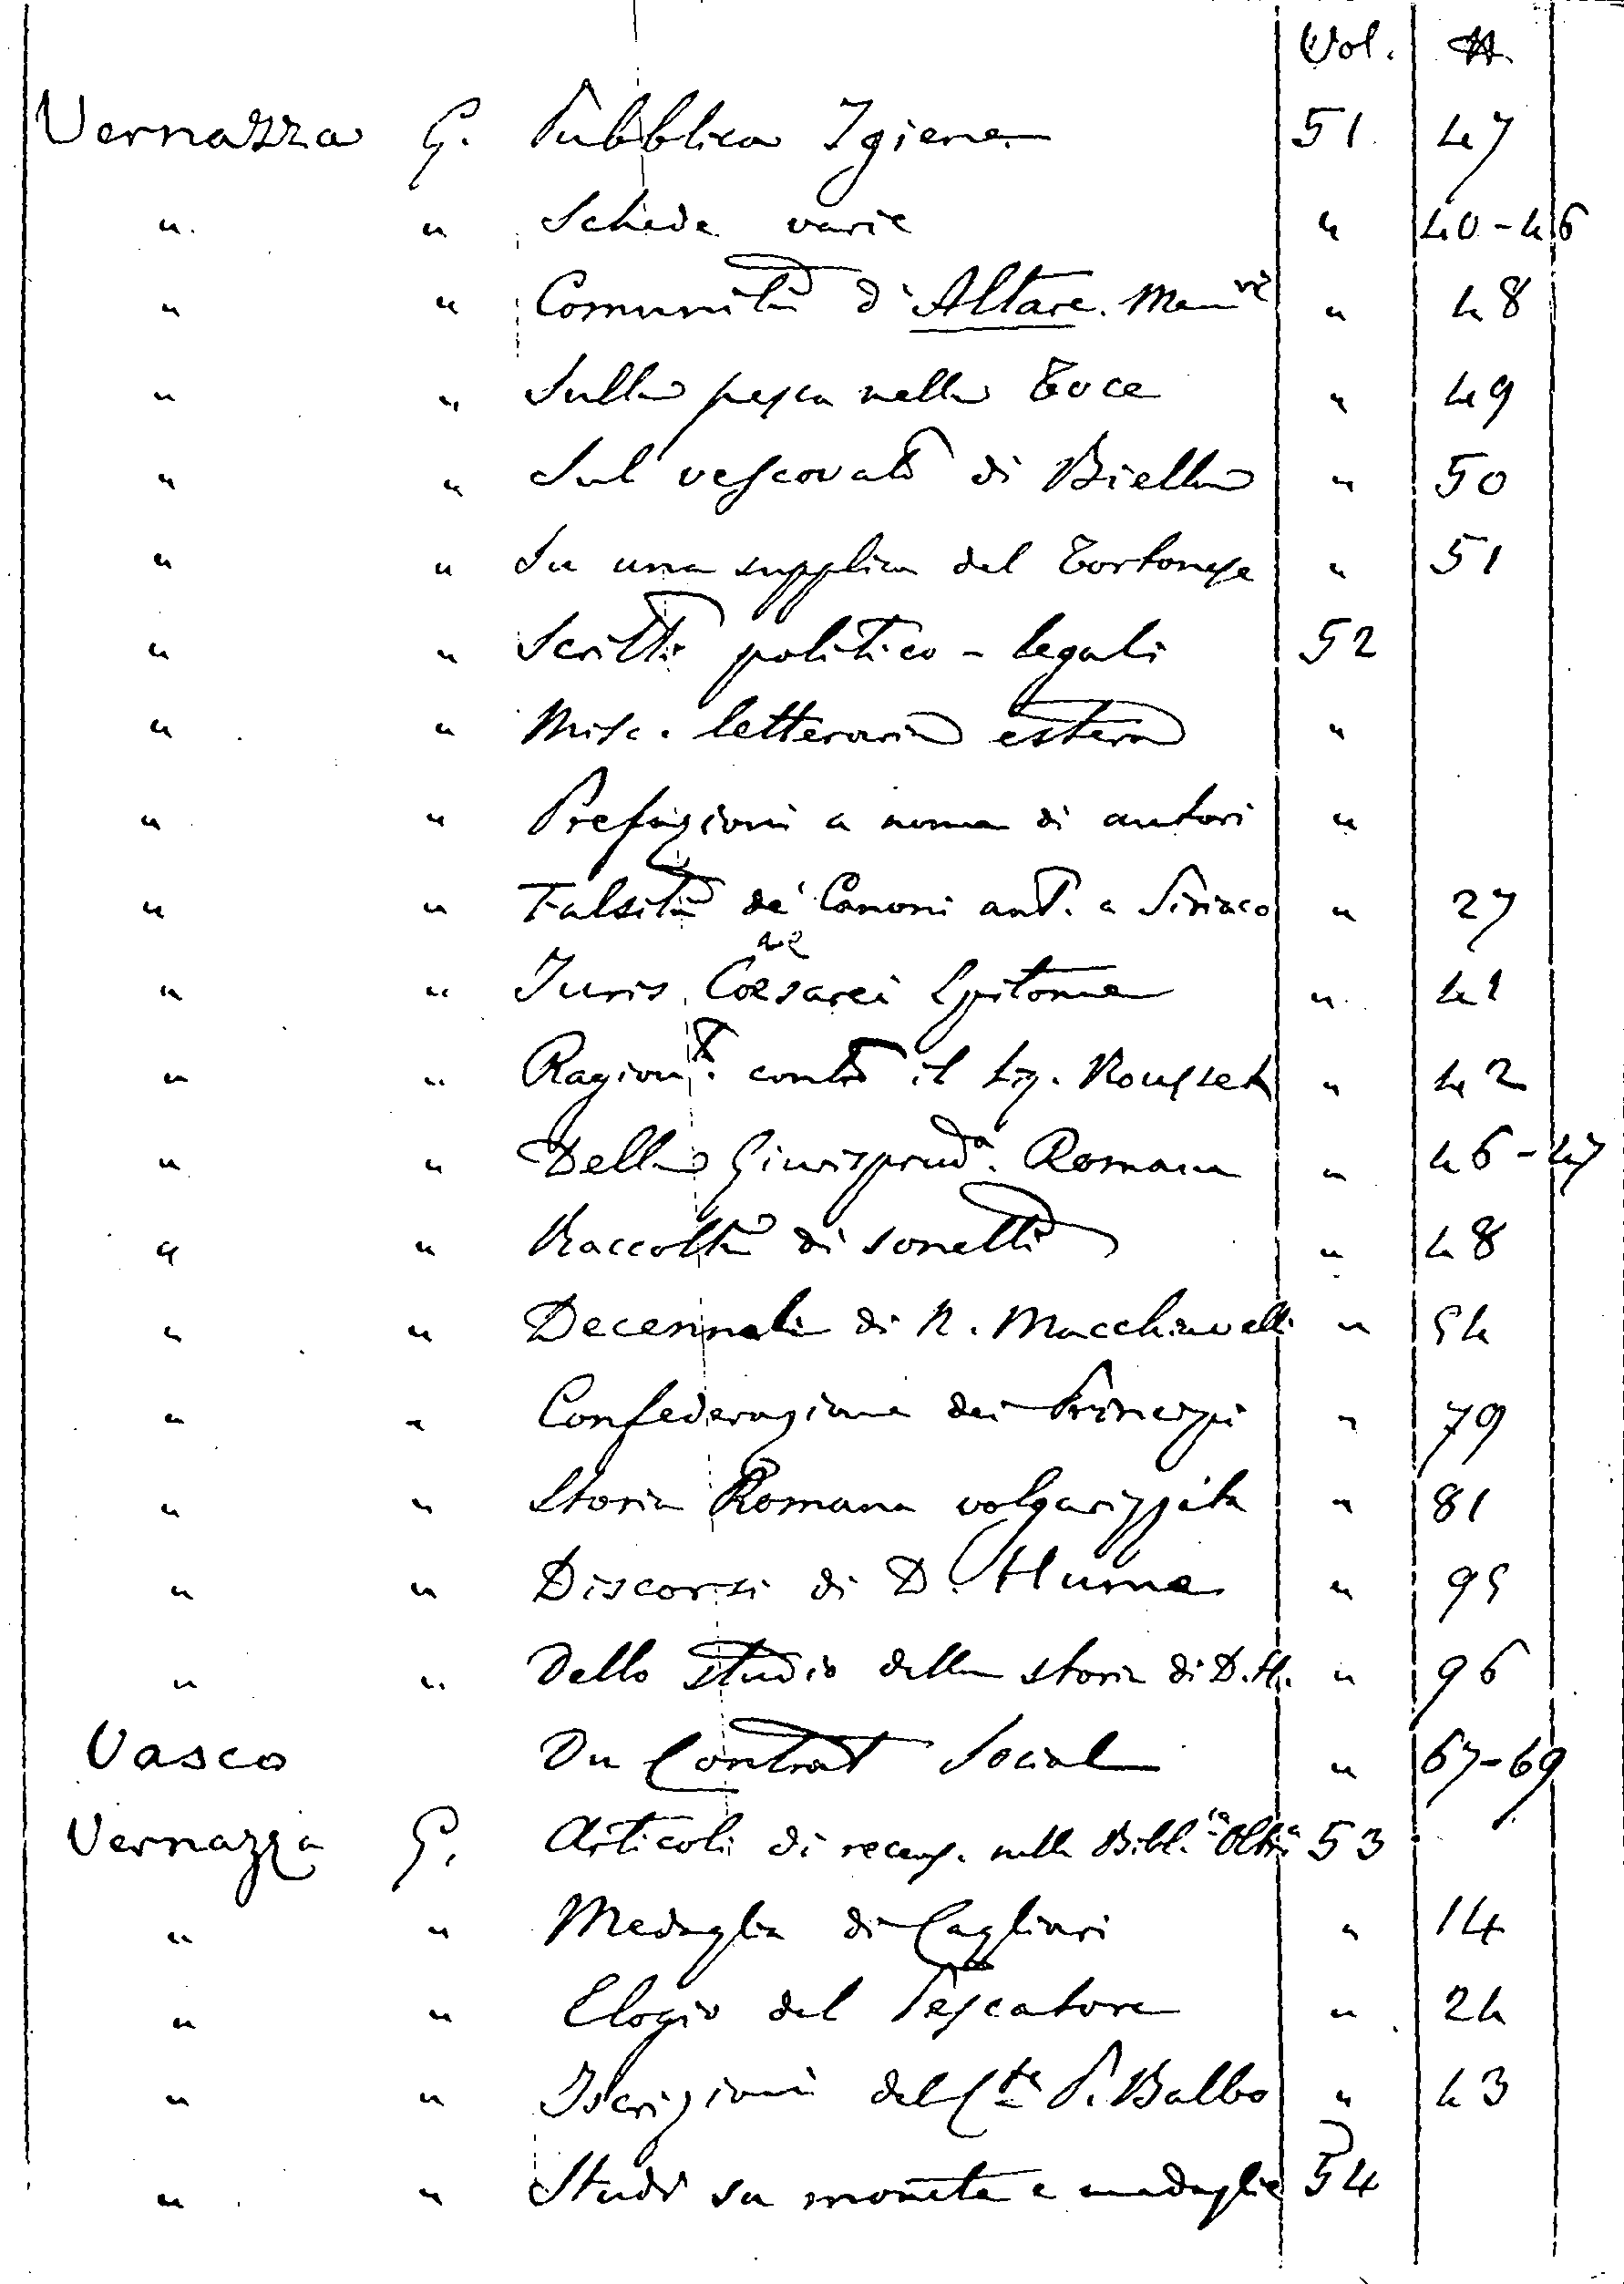 Vol. #
Vernazza G. Pubblica Igiene 51 47
" " Schede varie " 40-46
" " Comunità d'Altare. Mem.rie " 48
" " Sulla pesca nella Toce " 49
" " Sul vescovato di Biella " 50
" " Su una supplica del Tortonese " 51
" " Scritti politico-legali 52
" " Misc. letteraria estera "
" " Prefazioni a nome di autori "
" " Falsità de' Canoni ant. a Siriaco " 27
" " Juris Caesarei Epitome " 41
" " Ragion.ti contro il Sig. Rousset " 42
" " Della Giurisprud.a Romana " 46-47
" " Raccolta di sonetti " 48
" " Decennali di N. Macchiavelli " 54
" " Confederazione dei Principi " 79
" " Storia Romana volgarizzata " 81
" " Discorsi di D. Hume " 95
" " Dello studio della storia di D.H. " 96
Vasco Du Contrat Social " 67-69
Vernazza G. Articoli di recens. nella Bibl.ca Oltr.a 53
" " Medaglia di Cagliari " 14
" " Elogio del Pescatore " 24
" " Iscrizioni del Cte P. Balbo " 43
" " Studi su monete e medaglie 54